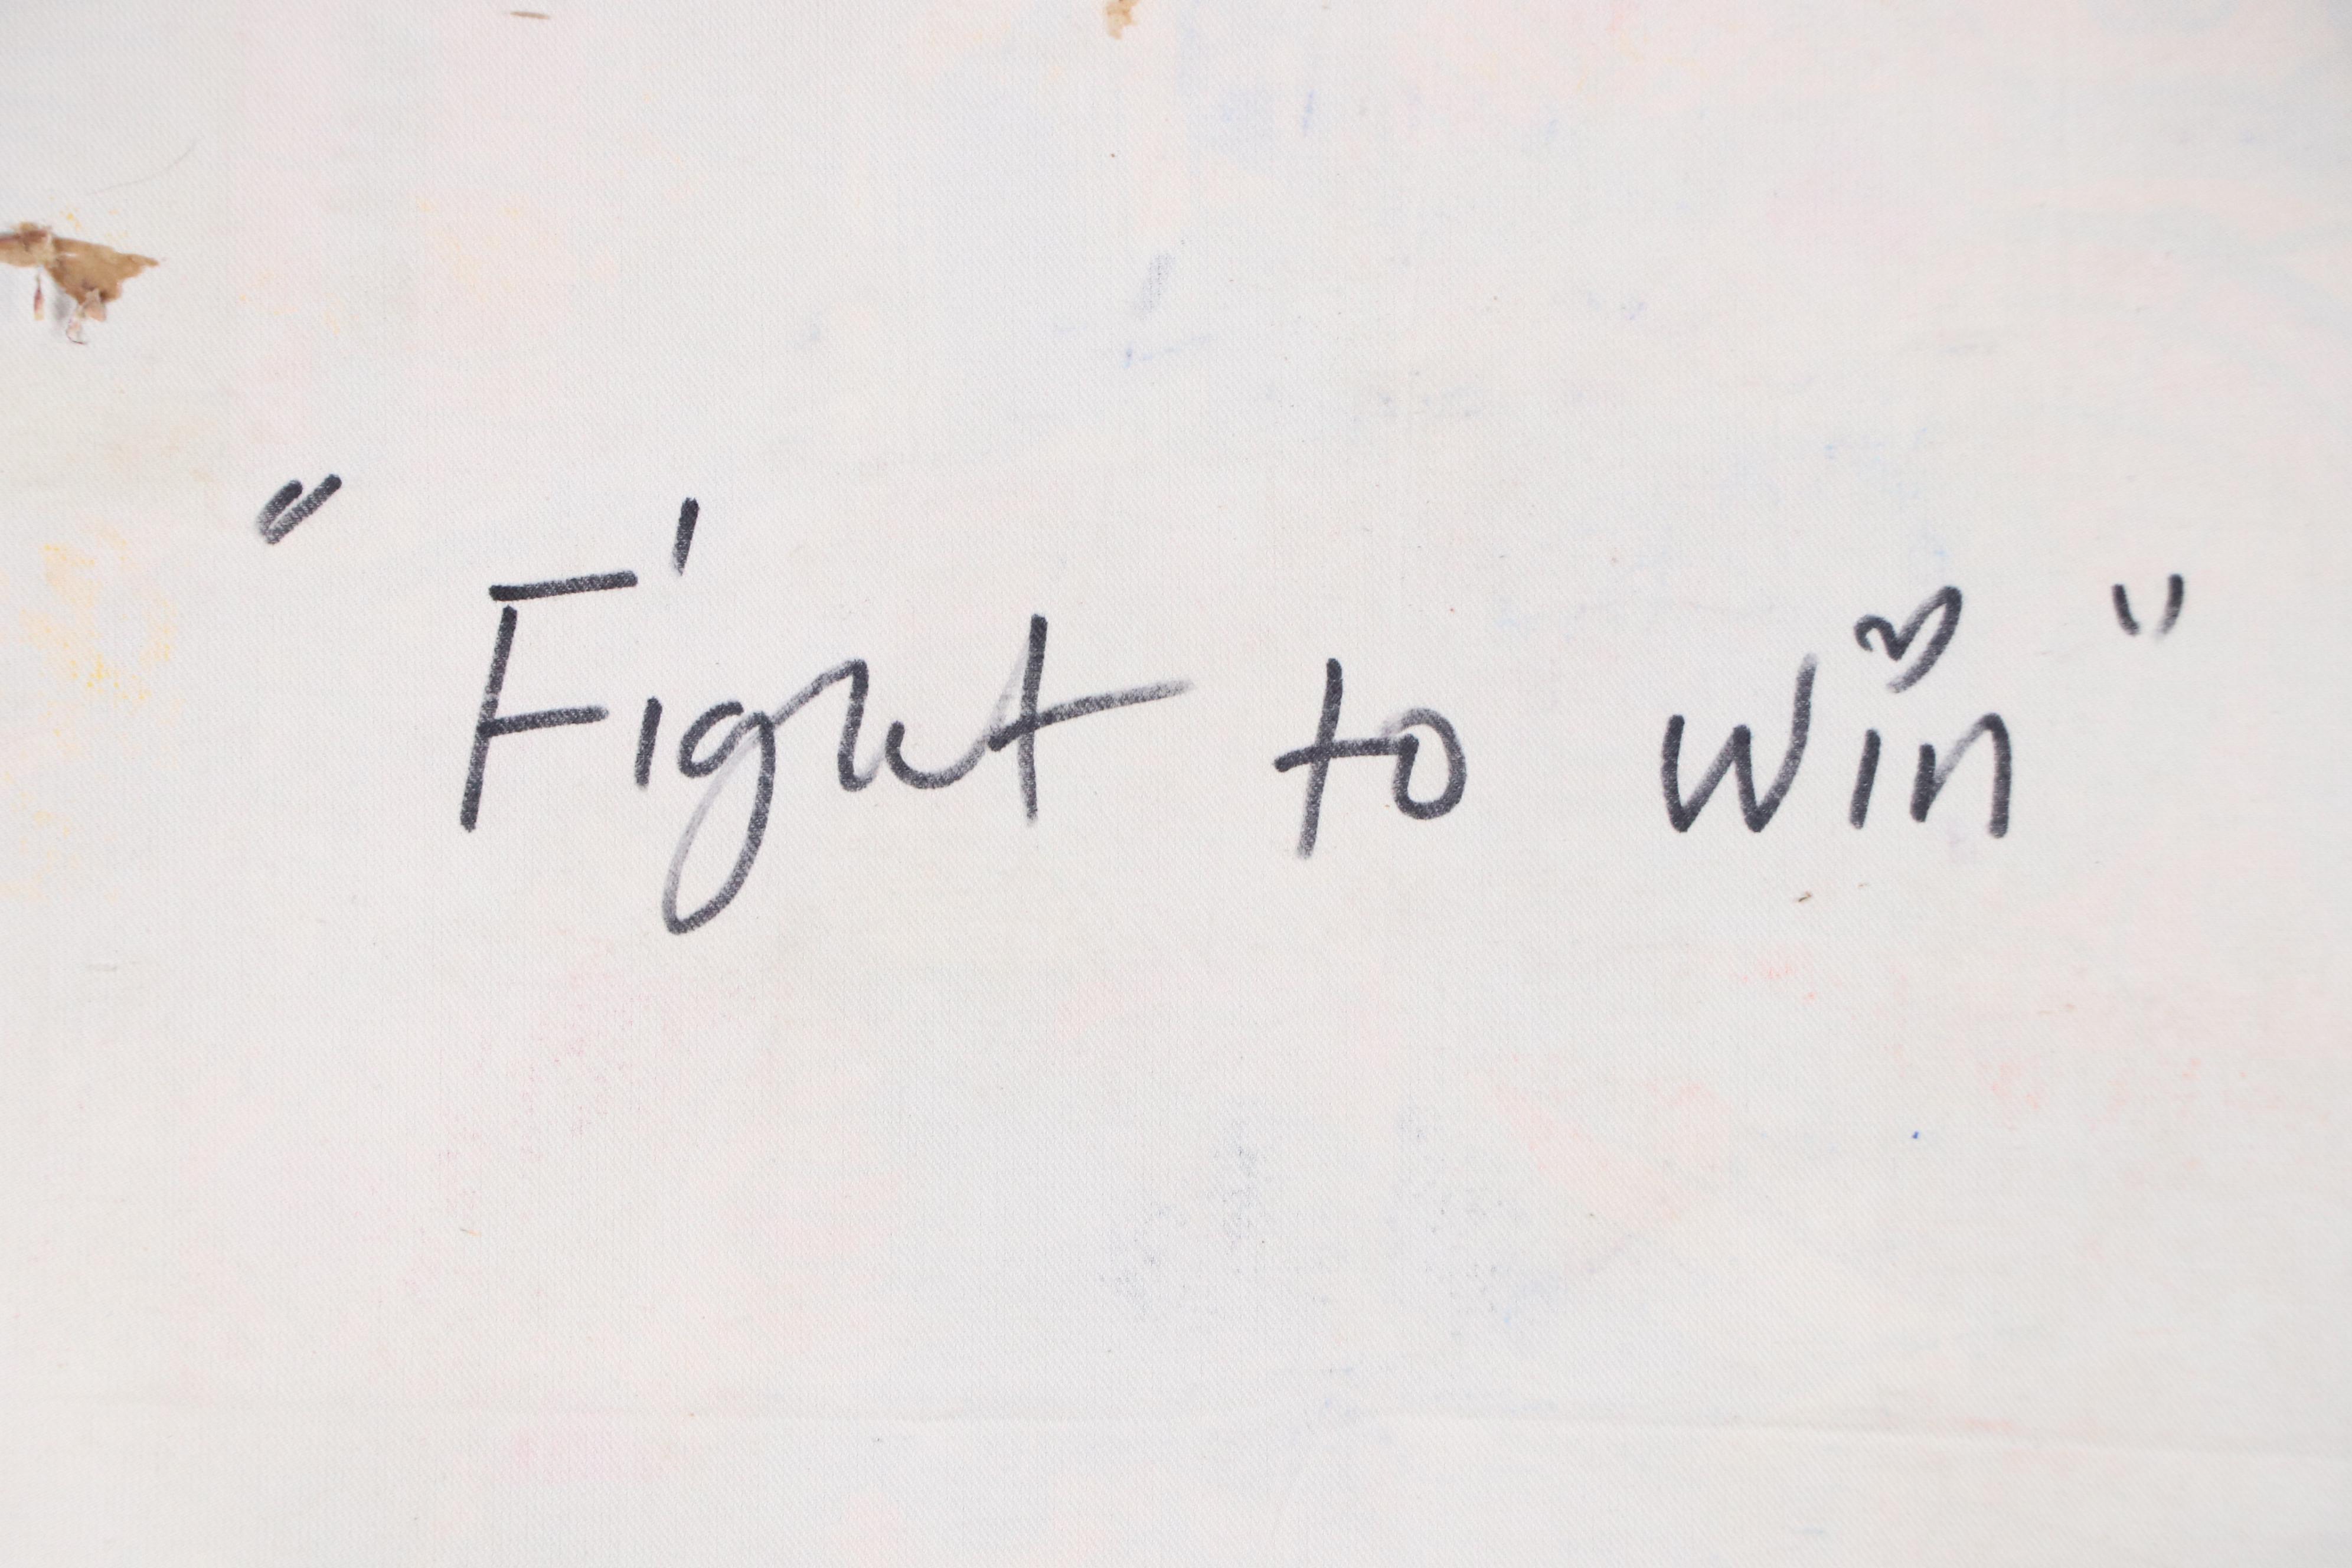 "Fight to win"